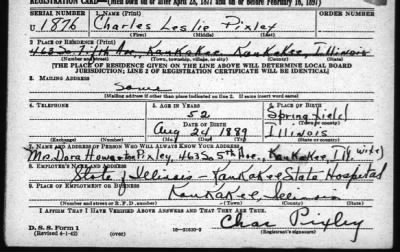 REGISTRATION CARD—(Men born on or after April 28, 1877 and on or before February 16, 1897)
SERIAL NUMBER 1. NAME (Print) ORDER NUMBER
U 1876 Charles Leslie Pixley
(First) (Middle) (Last)
2. PLACE OF RESIDENCE (Print)
463 S. Fifth Ave, Kankakee, Kankakee, Illinois
(Number and street) (Town, township, village, or city) (County) (State)
[THE PLACE OF RESIDENCE GIVEN ON THE LINE ABOVE WILL DETERMINE LOCAL BOARD
JURISDICTION; LINE 2 OF REGISTRATION CERTIFICATE WILL BE IDENTICAL]
3. MAILING ADDRESS
Same
(Mailing address if other than place indicated on line 2. If same insert word same)
4. TELEPHONE 5. AGE IN YEARS 6. PLACE OF BIRTH
52 Springfield
DATE OF BIRTH (Town or county)
Aug 2d 1889 Illinois
(Exchange) (Number) (Mo.) (Day) (Yr.) (State or country)
7. NAME AND ADDRESS OF PERSON WHO WILL ALWAYS KNOW YOUR ADDRESS
Mrs Dora Howarth Pixley, 463 S. 5th Ave., Kankakee, Ill. (wife)
8. EMPLOYER'S NAME AND ADDRESS
State of Illinois - Kankakee State Hospital
9. PLACE OF EMPLOYMENT OR BUSINESS
Kankakee, Illinois
(Number and street or R. F. D. number) (Town) (County) (State)
I AFFIRM THAT I HAVE VERIFIED ABOVE ANSWERS AND THAT THEY ARE TRUE.
D. S. S. Form 1 Chas Pixley
(Revised 4-1-42) 16—21630-2 (Registrant's signature)